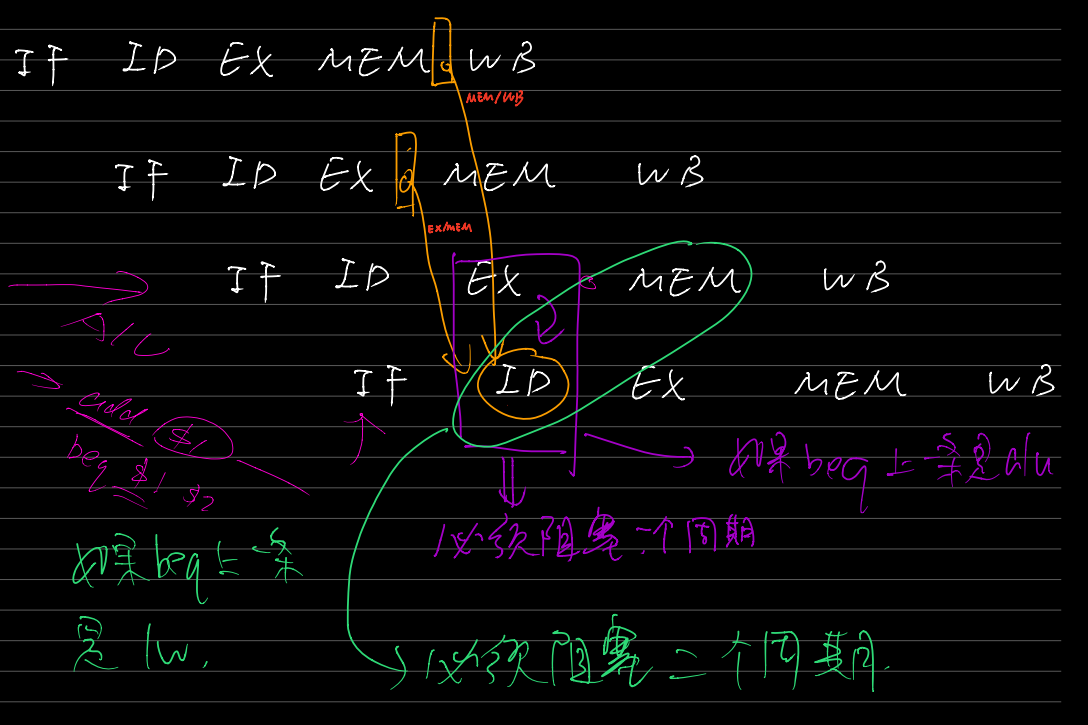 IF ID EX MEM WB
MEM/WB
IF ID EX MEM WB
EX/MEM
IF ID EX MEM WB
IF ID EX MEM WB
add $1
beq $1 $2
如果beq上一条是alu
必须阻塞一个周期
如果beq上一条
是lw.
必须阻塞二个周期.